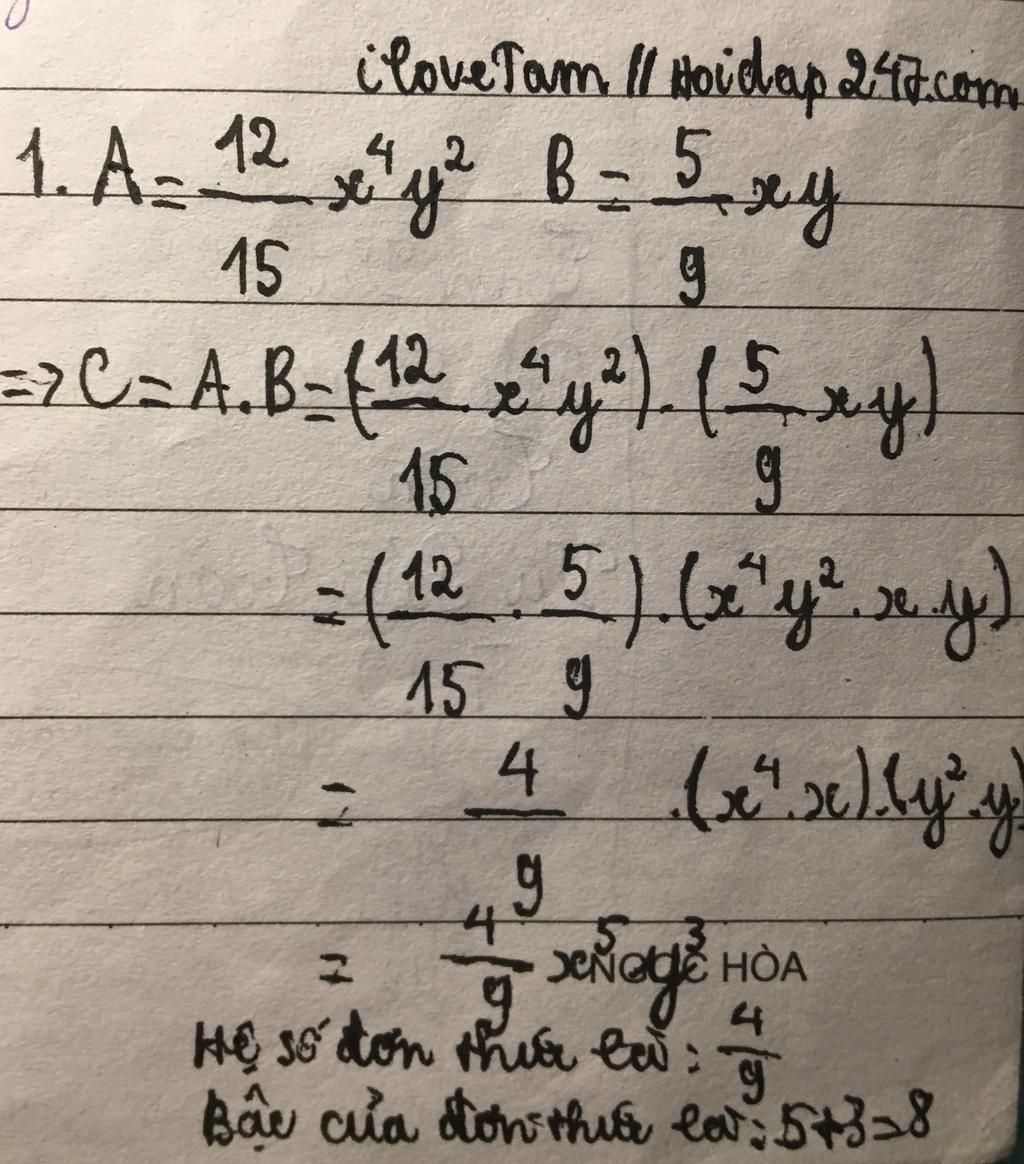 iloveTam // Hoidap 247.com
1. A = 12/15 x⁴y² B = 5/9 xy
=> C = A.B = (12/15 x⁴y²) . (5/9 xy)
= (12/15 . 5/9) . (x⁴y² . x . y)
= 4/9 . (x⁴ . x) . (y² . y)
= 4/9 x⁵y³
NGỌC HÒA
Hệ số đơn thức là: 4/9
Bậc của đơn thức là: 5+3=8